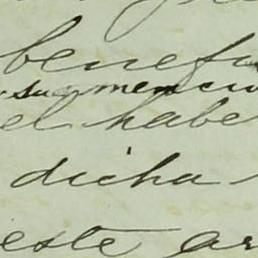 benef
su mencio
el habe
dicha
este ar